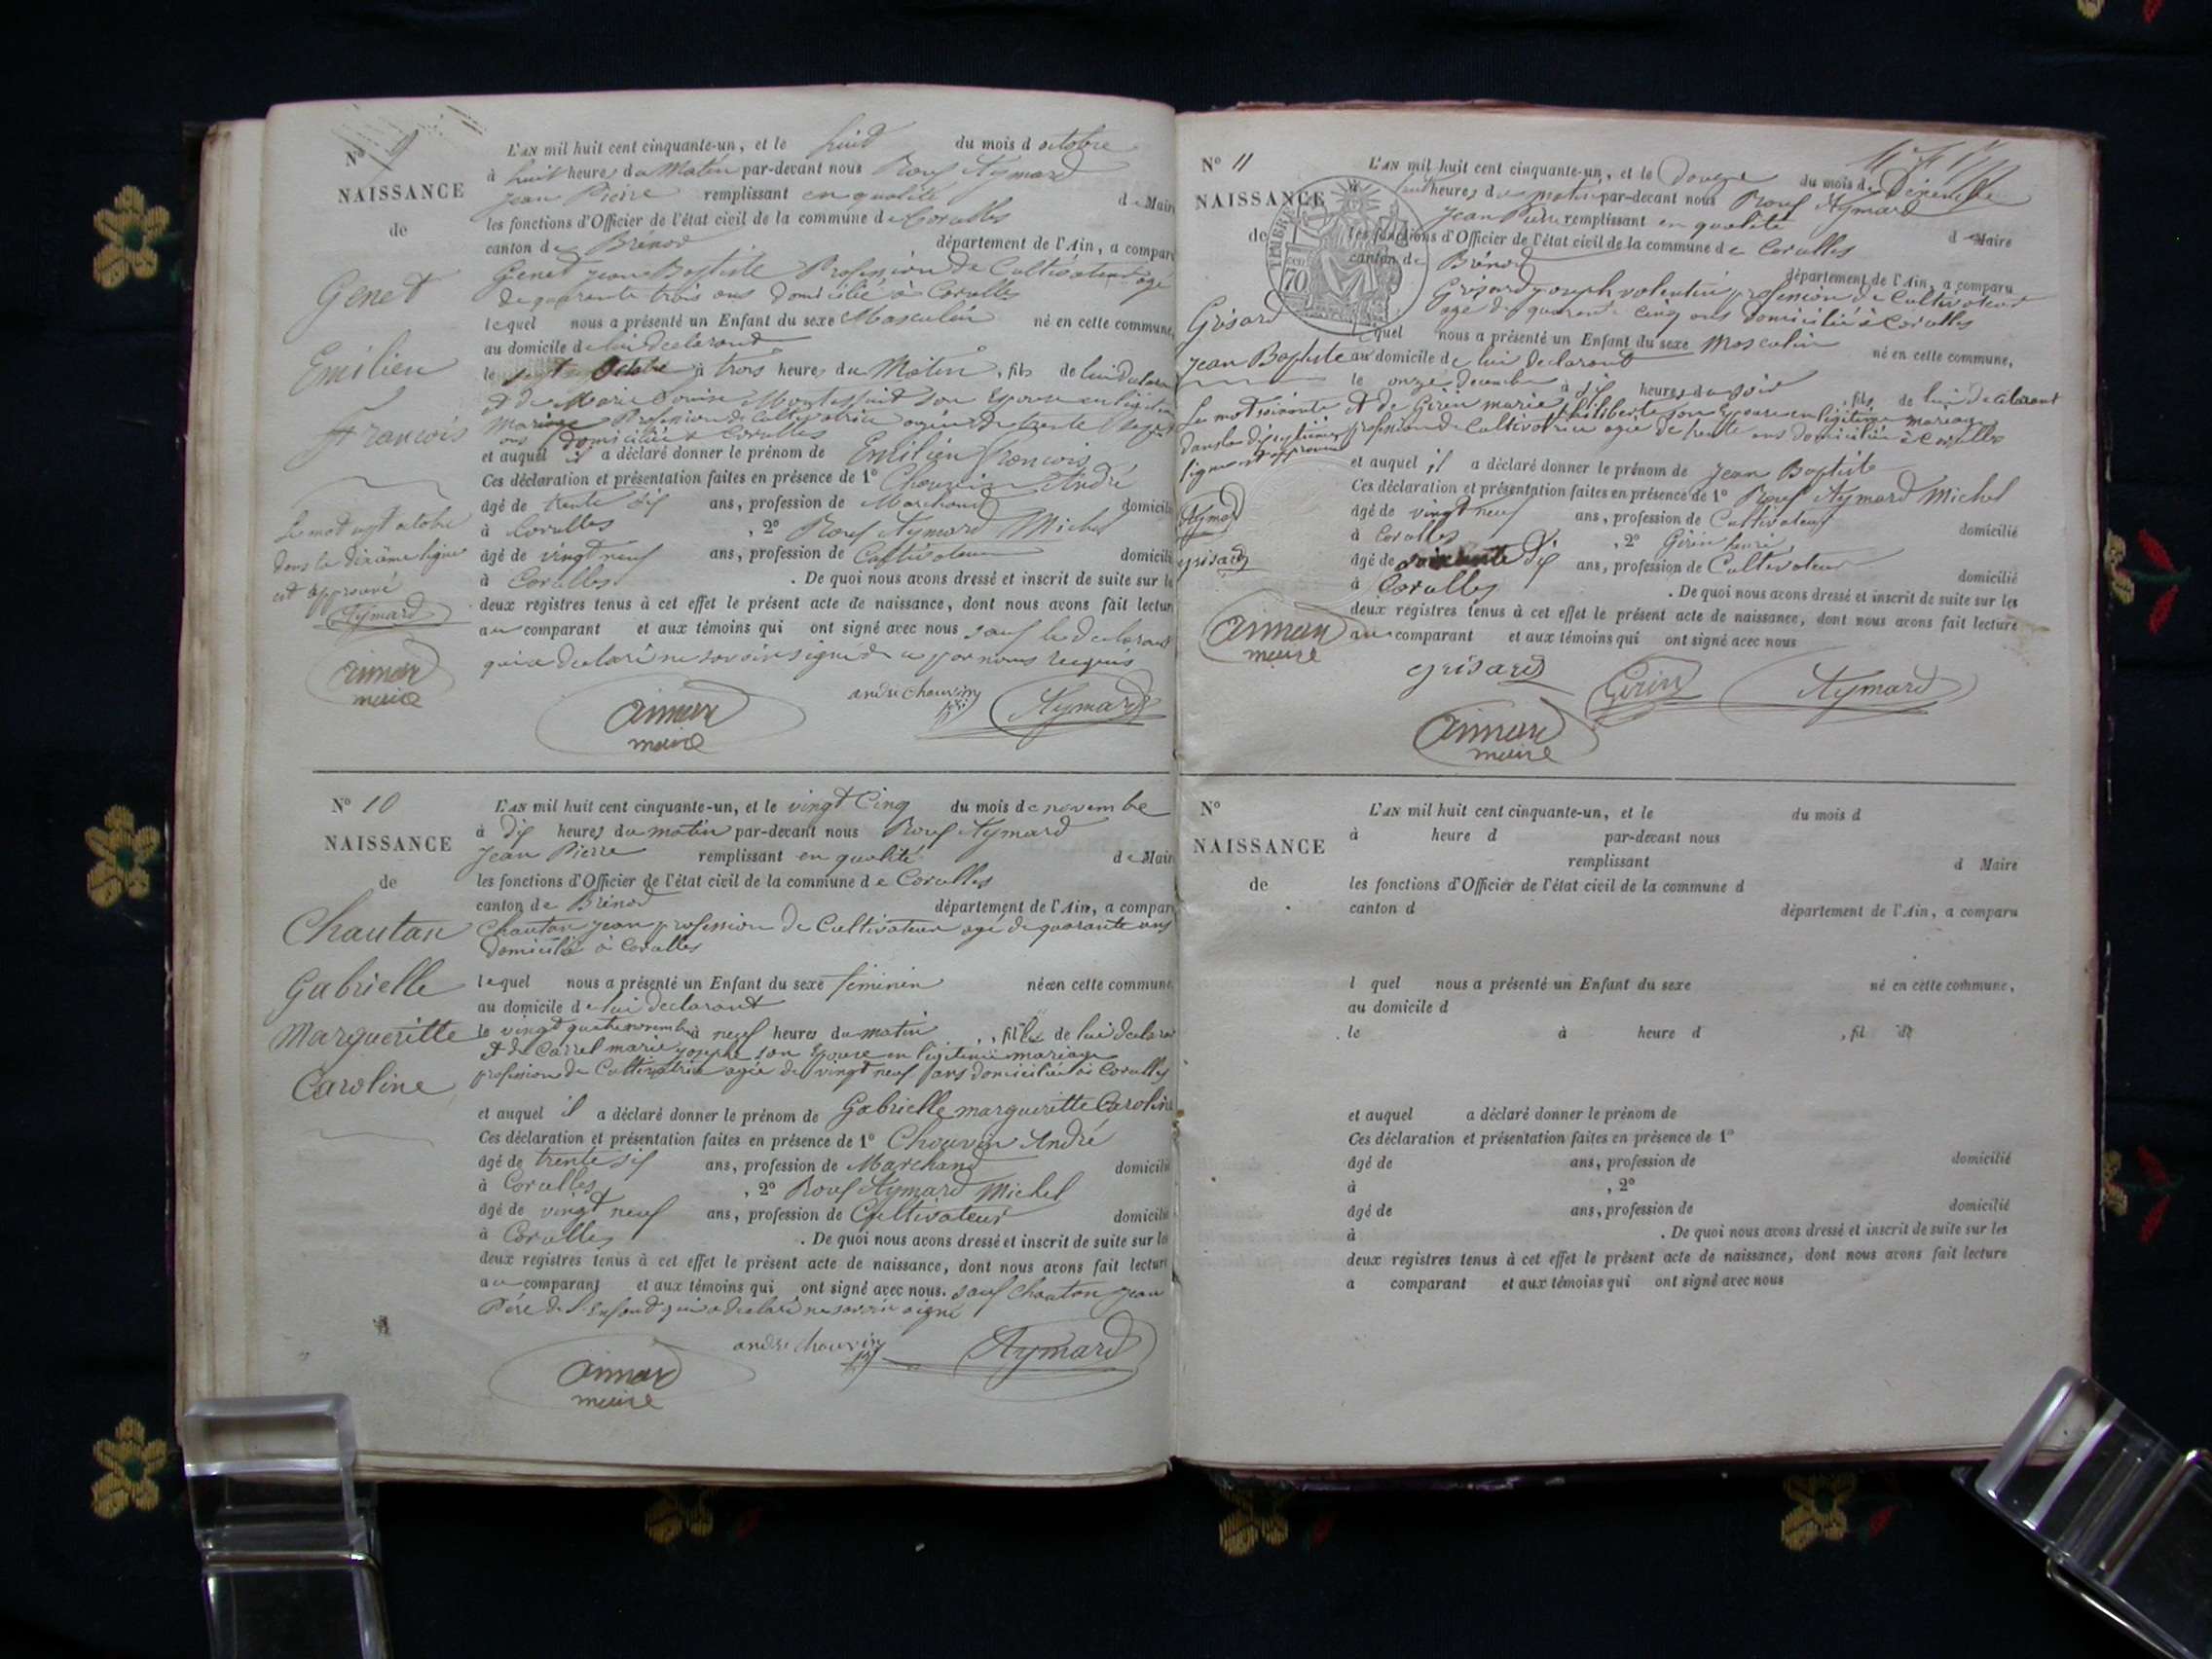 N° 9
L'AN mil huit cent cinquante-un, et le huit du mois d octobre
à huit heures du Matin par-devant nous Rouf Aymard
Jean Pierre remplissant en qualité de Maire
NAISSANCE
de
les fonctions d'Officier de l'état civil de la commune de Corcelles
canton de Brénod département de l'Ain, a comparu
Genet Jean Baptiste Profession de Cultivateur agé
de quarante trois ans domicilié à Corcelles
lequel nous a présenté un Enfant du sexe Masculin né en cette commune,
au domicile de lui declarant
le sept octobre à trois heures du Matin, fils de lui declarant
et de Marie Louise son Epouse en légitime
mariage Profession de Cultivatrice agée de trente sept
ans domiciliée à Corcelles
et auquel il a déclaré donner le prénom de Emilien françois
Ces déclaration et présentation faites en présence de 1° Chouvin André
âgé de trente six ans, profession de Marchand domicilié
à Corcelles, 2° Rouf Aymard Michel
âgé de vingt neuf ans, profession de Cultivateur domicilié
à Corcelles. De quoi nous avons dressé et inscrit de suite sur les
deux registres tenus à cet effet le présent acte de naissance, dont nous avons fait lecture
au comparant et aux témoins qui ont signé avec nous sauf le declarant
qui a declaré ne savoir signé de ce par nous requis
Genet
Emilien
François
Le mot sept octobre
dans la dixième ligne
est approuvé
Aymard
aimard
maire
aimard
maire
andré chouvin
Aymard
N° 10
NAISSANCE
de
Chautan
Gabrielle
Margueritte
Caroline
L'AN mil huit cent cinquante-un, et le vingt Cinq du mois de novembre
à dix heures du matin par-devant nous Rouf Aymard
Jean Pierre remplissant en qualité de Maire
les fonctions d'Officier de l'état civil de la commune de Corcelles
canton de Brénod département de l'Ain, a comparu
Chautan jean profession de Cultivateur agé de quarante ans
domicilié à Corcelles
lequel nous a présenté un Enfant du sexe féminin née en cette commune,
au domicile de lui declarant
le vingt quatre novembre à neuf heures du matin, fille de lui declarant
et de Carrel marie josephe son Epouse en légitime mariage
profession de Cultivatrice agée de vingt neuf ans domiciliée à Corcelles
et auquel il a déclaré donner le prénom de Gabrielle margueritte Caroline
Ces déclaration et présentation faites en présence de 1° Chouvin André
âgé de trente six ans, profession de Marchand domicilié
à Corcelles, 2° Rouf Aymard Michel
âgé de vingt neuf ans, profession de Cultivateur domicilié
à Corcelles. De quoi nous avons dressé et inscrit de suite sur les
deux registres tenus à cet effet le présent acte de naissance, dont nous avons fait lecture
au comparant et aux témoins qui ont signé avec nous. sauf Chautan jean
Père de l'enfant qui a declaré ne savoir signé
andré chouvin
Aymard
aimard
maire
N° 11
NAISSANCE
de
TIMBRE
70
Grisard
Jean Baptiste
Le mot soixante
dans la dix septième
ligne est approuvé
Aymard
grisard
aimard
maire
L'AN mil huit cent cinquante-un, et le Douze du mois de Décembre
à huit heures du matin par-devant nous Rouf Aymard
Jean Pierre remplissant en qualité de Maire
les fonctions d'Officier de l'état civil de la commune de Corcelles
canton de Brénod département de l'Ain, a comparu
Grisard joseph valentin profession de Cultivateur
agé de quarante cinq ans domicilié à Corcelles
lequel nous a présenté un Enfant du sexe Masculin né en cette commune,
au domicile de lui declarant
le onze decembre à six heures du soir, fils de lui declarant
et de Girin marie philiberte son Epouse en légitime mariage
profession de Cultivatrice agée de trente ans domiciliée à Corcelles
et auquel il a déclaré donner le prénom de Jean Baptiste
Ces déclaration et présentation faites en présence de 1° Rouf Aymard Michel
âgé de vingt neuf ans, profession de Cultivateur domicilié
à Corcelles, 2° Girin
âgé de soixante dix ans, profession de Cultivateur domicilié
à Corcelles. De quoi nous avons dressé et inscrit de suite sur les
deux registres tenus à cet effet le présent acte de naissance, dont nous avons fait lecture
au comparant et aux témoins qui ont signé avec nous
grisard
Girin
Aymard
aimard
maire
N°
NAISSANCE
de
L'AN mil huit cent cinquante-un, et le du mois d
à heure d par-devant nous
remplissant d Maire
les fonctions d'Officier de l'état civil de la commune d
canton d département de l'Ain, a comparu
l quel nous a présenté un Enfant du sexe né en cette commune,
au domicile d
le à heure d , fil de
et auquel a déclaré donner le prénom de
Ces déclaration et présentation faites en présence de 1°
âgé de ans, profession de domicilié
à , 2°
âgé de ans, profession de domicilié
à . De quoi nous avons dressé et inscrit de suite sur les
deux registres tenus à cet effet le présent acte de naissance, dont nous avons fait lecture
a comparant et aux témoins qui ont signé avec nous